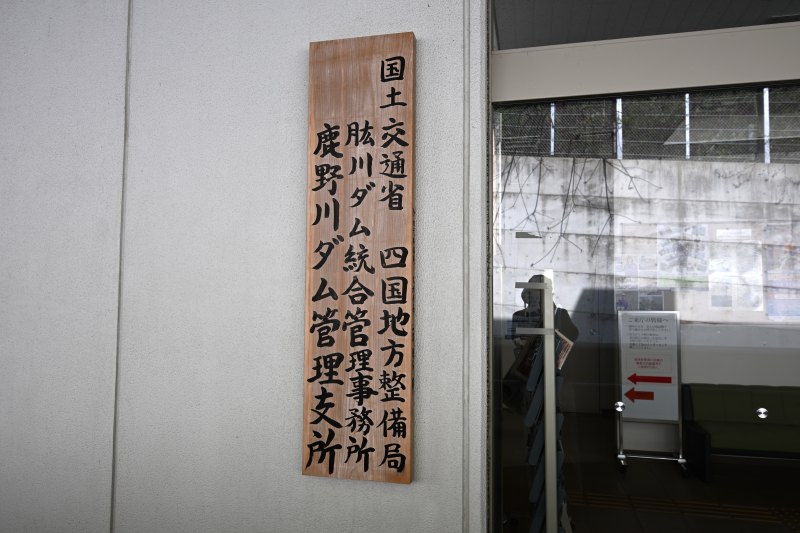 国土交通省 四国地方整備局
肱川ダム統合管理事務所
鹿野川ダム管理支所
ご来庁の皆様へ